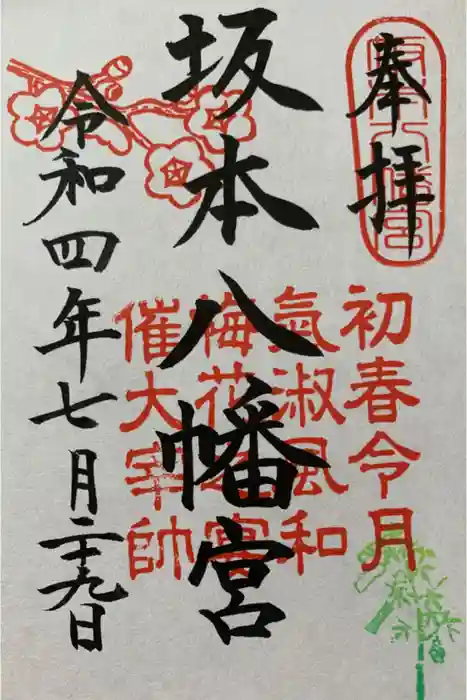 奉拝
坂本八幡宮
令和四年七月二十九日
初春令月
氣淑風和
梅花之宴
催大宰帥